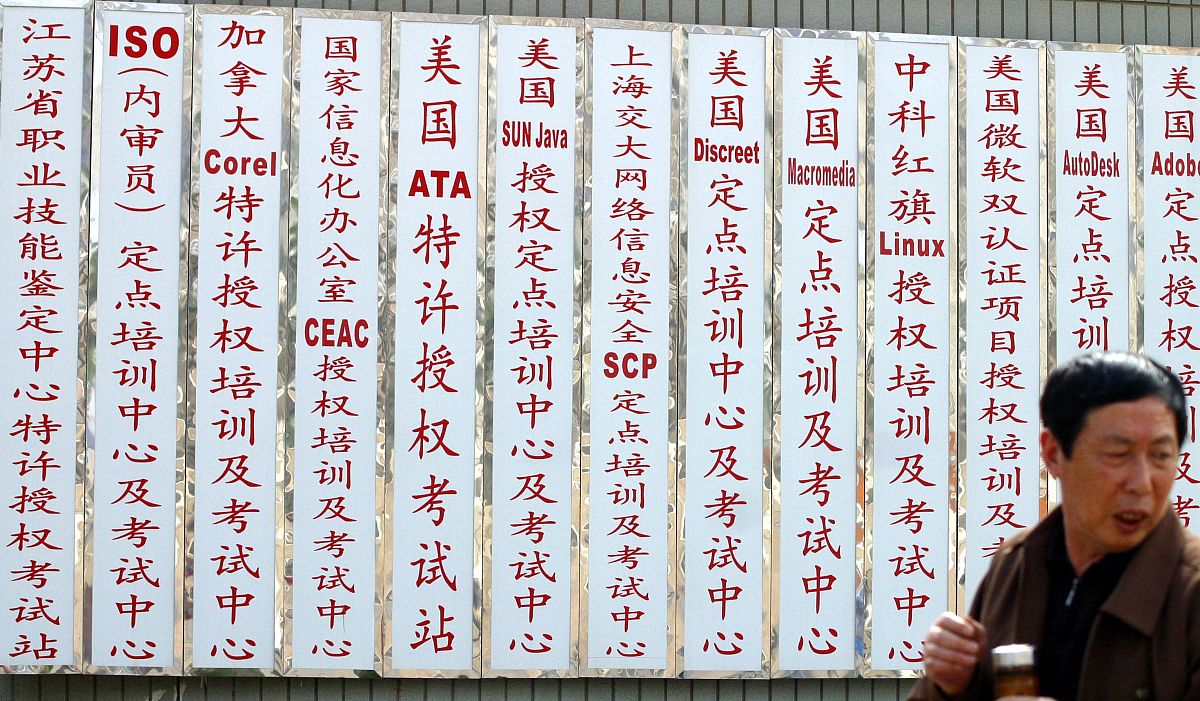 江苏省职业技能鉴定中心特许授权考试站
ISO（内审员）定点培训中心及考试中心
加拿大Corel特许授权培训及考试中心
国家信息化办公室CEAC授权培训及考试中心
美国ATA特许授权考试站
美国SUN Java授权定点培训中心及考试中心
上海交大网络信息安全SCP定点培训及考试中心
美国Discreet定点培训中心及考试中心
美国Macromedia定点培训及考试中心
中科红旗Linux授权培训及考试中心
美国微软双认证项目授权培训及考
美国AutoDesk定点培训
美国Adobe定点授权